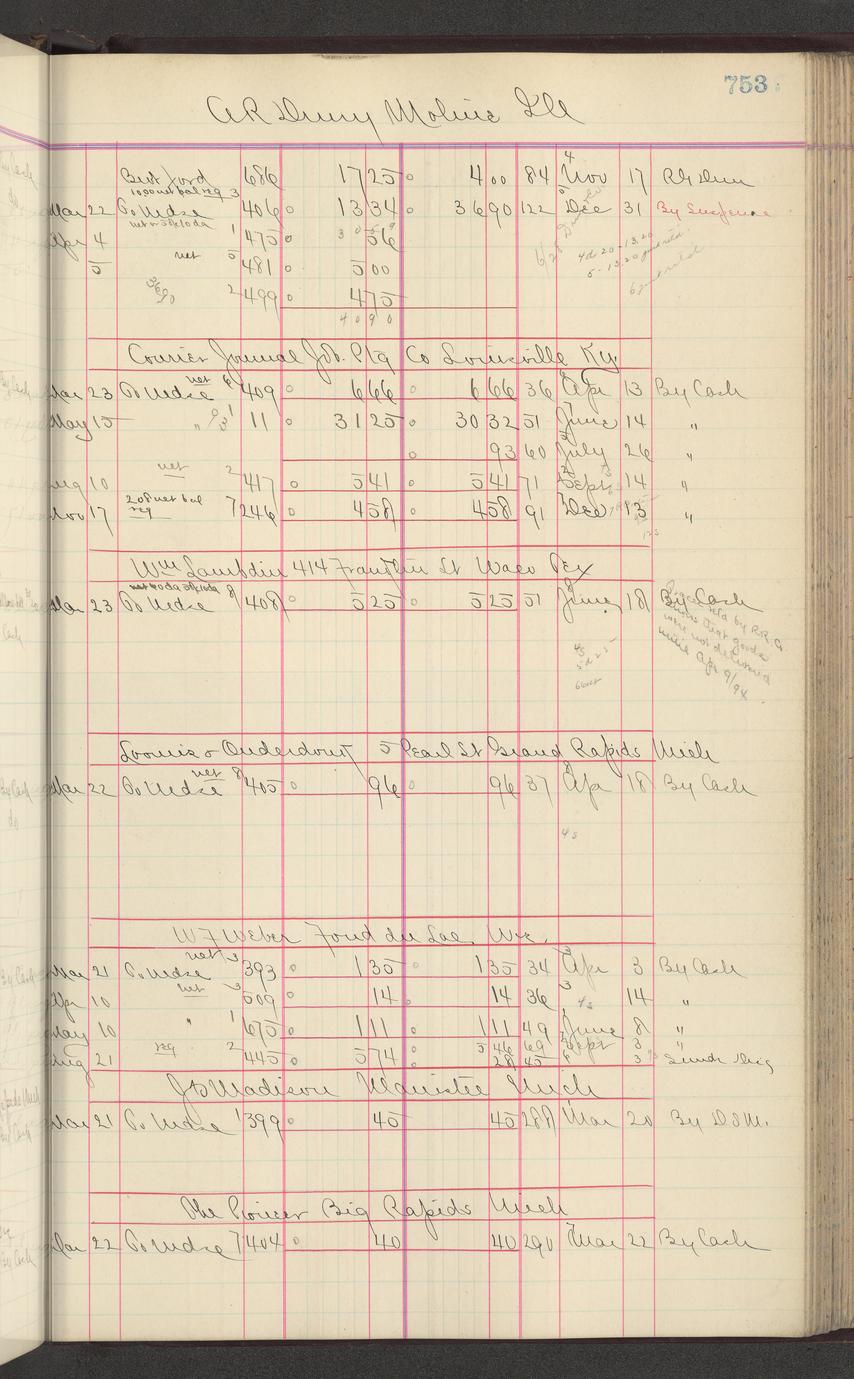 753
A R Drury Moline Ill
Bert Ford 686 17 25 4 00 84 Nov 17
1000 net bal req 3
Mar 22 To Mdse 406 13 34 36 90 122 Dec 31 By Suspense
Apr 4 1 475 56
5 net 5 481 5 00
36 90 2 499 4 75
40 90
Courier Journal Job Ptg Co Louisville Ky
Mar 23 To Mdse net 6 409 6 66 6 66 36 Apr 13 By Cash
May 15 " 93 1 11 31 25 30 32 51 June 14 "
93 60 July 26 "
Aug 10 net 2 417 5 41 5 41 71 Sept 14 "
Nov 17 208 net bal req 7 246 4 58 4 58 91 Dec 13 "
Wm Lambdin 414 Franklin St Waco Tex
Mar 23 To Mdse 8 408 5 25 5 25 51 June 18 By Cash
by R.R. Co
that goods
were not delivered
until Apr 9/94
Loomis & Onderdonk 5 Pearl St Grand Rapids Mich
Mar 22 To Mdse net 8 405 96 96 37 Apr 18 By Cash
4 s
W F Weber Fond du Lac, Wis.
Mar 21 To Mdse net 3 393 1 35 1 35 34 Apr 3 By Cash
Apr 10 net 3 509 14 14 36 14 "
May 10 " 1 675 1 11 1 11 49 June 8 "
Aug 21 req 2 445 5 74 5 46 69 Sept 3 "
28 45 3
J B Madison Manistee Mich
Mar 21 To Mdse 1 399 45 45 288 Mar 20 By D S M.
The Pioneer Big Rapids Mich
Mar 22 To Mdse 7 404 40 40 290 Mar 22 By Cash